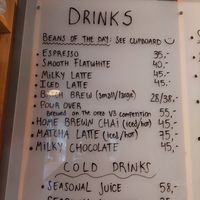 DRINKS
BEANS OF THE DAY: SEE CLIPBOARD
• ESPRESSO 35,-
• SMOOTH FLATWHITE 40,-
• MILKY LATTE 45,-
• ICED LATTE 45,-
• BATCH BREW (small/large) 28/38,-
• POUR OVER
Brewed on the oreo V3 competition 55,-
• HOME BREWN CHAI (iced/hot) 45,-
• MATCHA LATTE (iced/hot) 35,-
• MILKY CHOCOLATE 45,-
COLD DRINKS
• SEASONAL JUICE 58,-